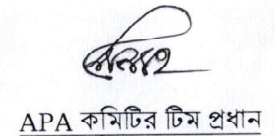 APA কমিটির টিম প্রধান